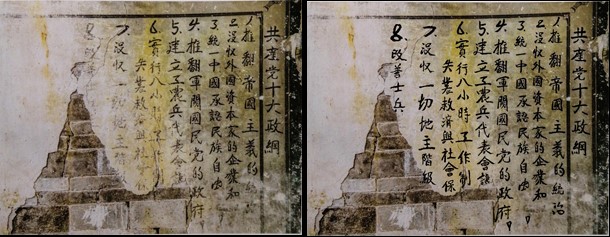 共產党十大政綱
1推翻帝國主義的統治
2沒收外國資本家的企業和
3統一中國承認民族自由
4.推翻軍閥國民党的政府
5.建立工農兵代表會議
6.實行八小時工作制
失業救濟與社會
7.沒收一切地主階級
8.改善
共產党十大政綱
1推翻帝國主義的統治
2沒收外國資本家的企業和
3統一中國承認民族自由
4.推翻軍閥國民党的政府
5.建立工農兵代表會議
6.實行八小時工作制
失業救濟與社會保
7.沒收一切地主階級
8.改善士兵